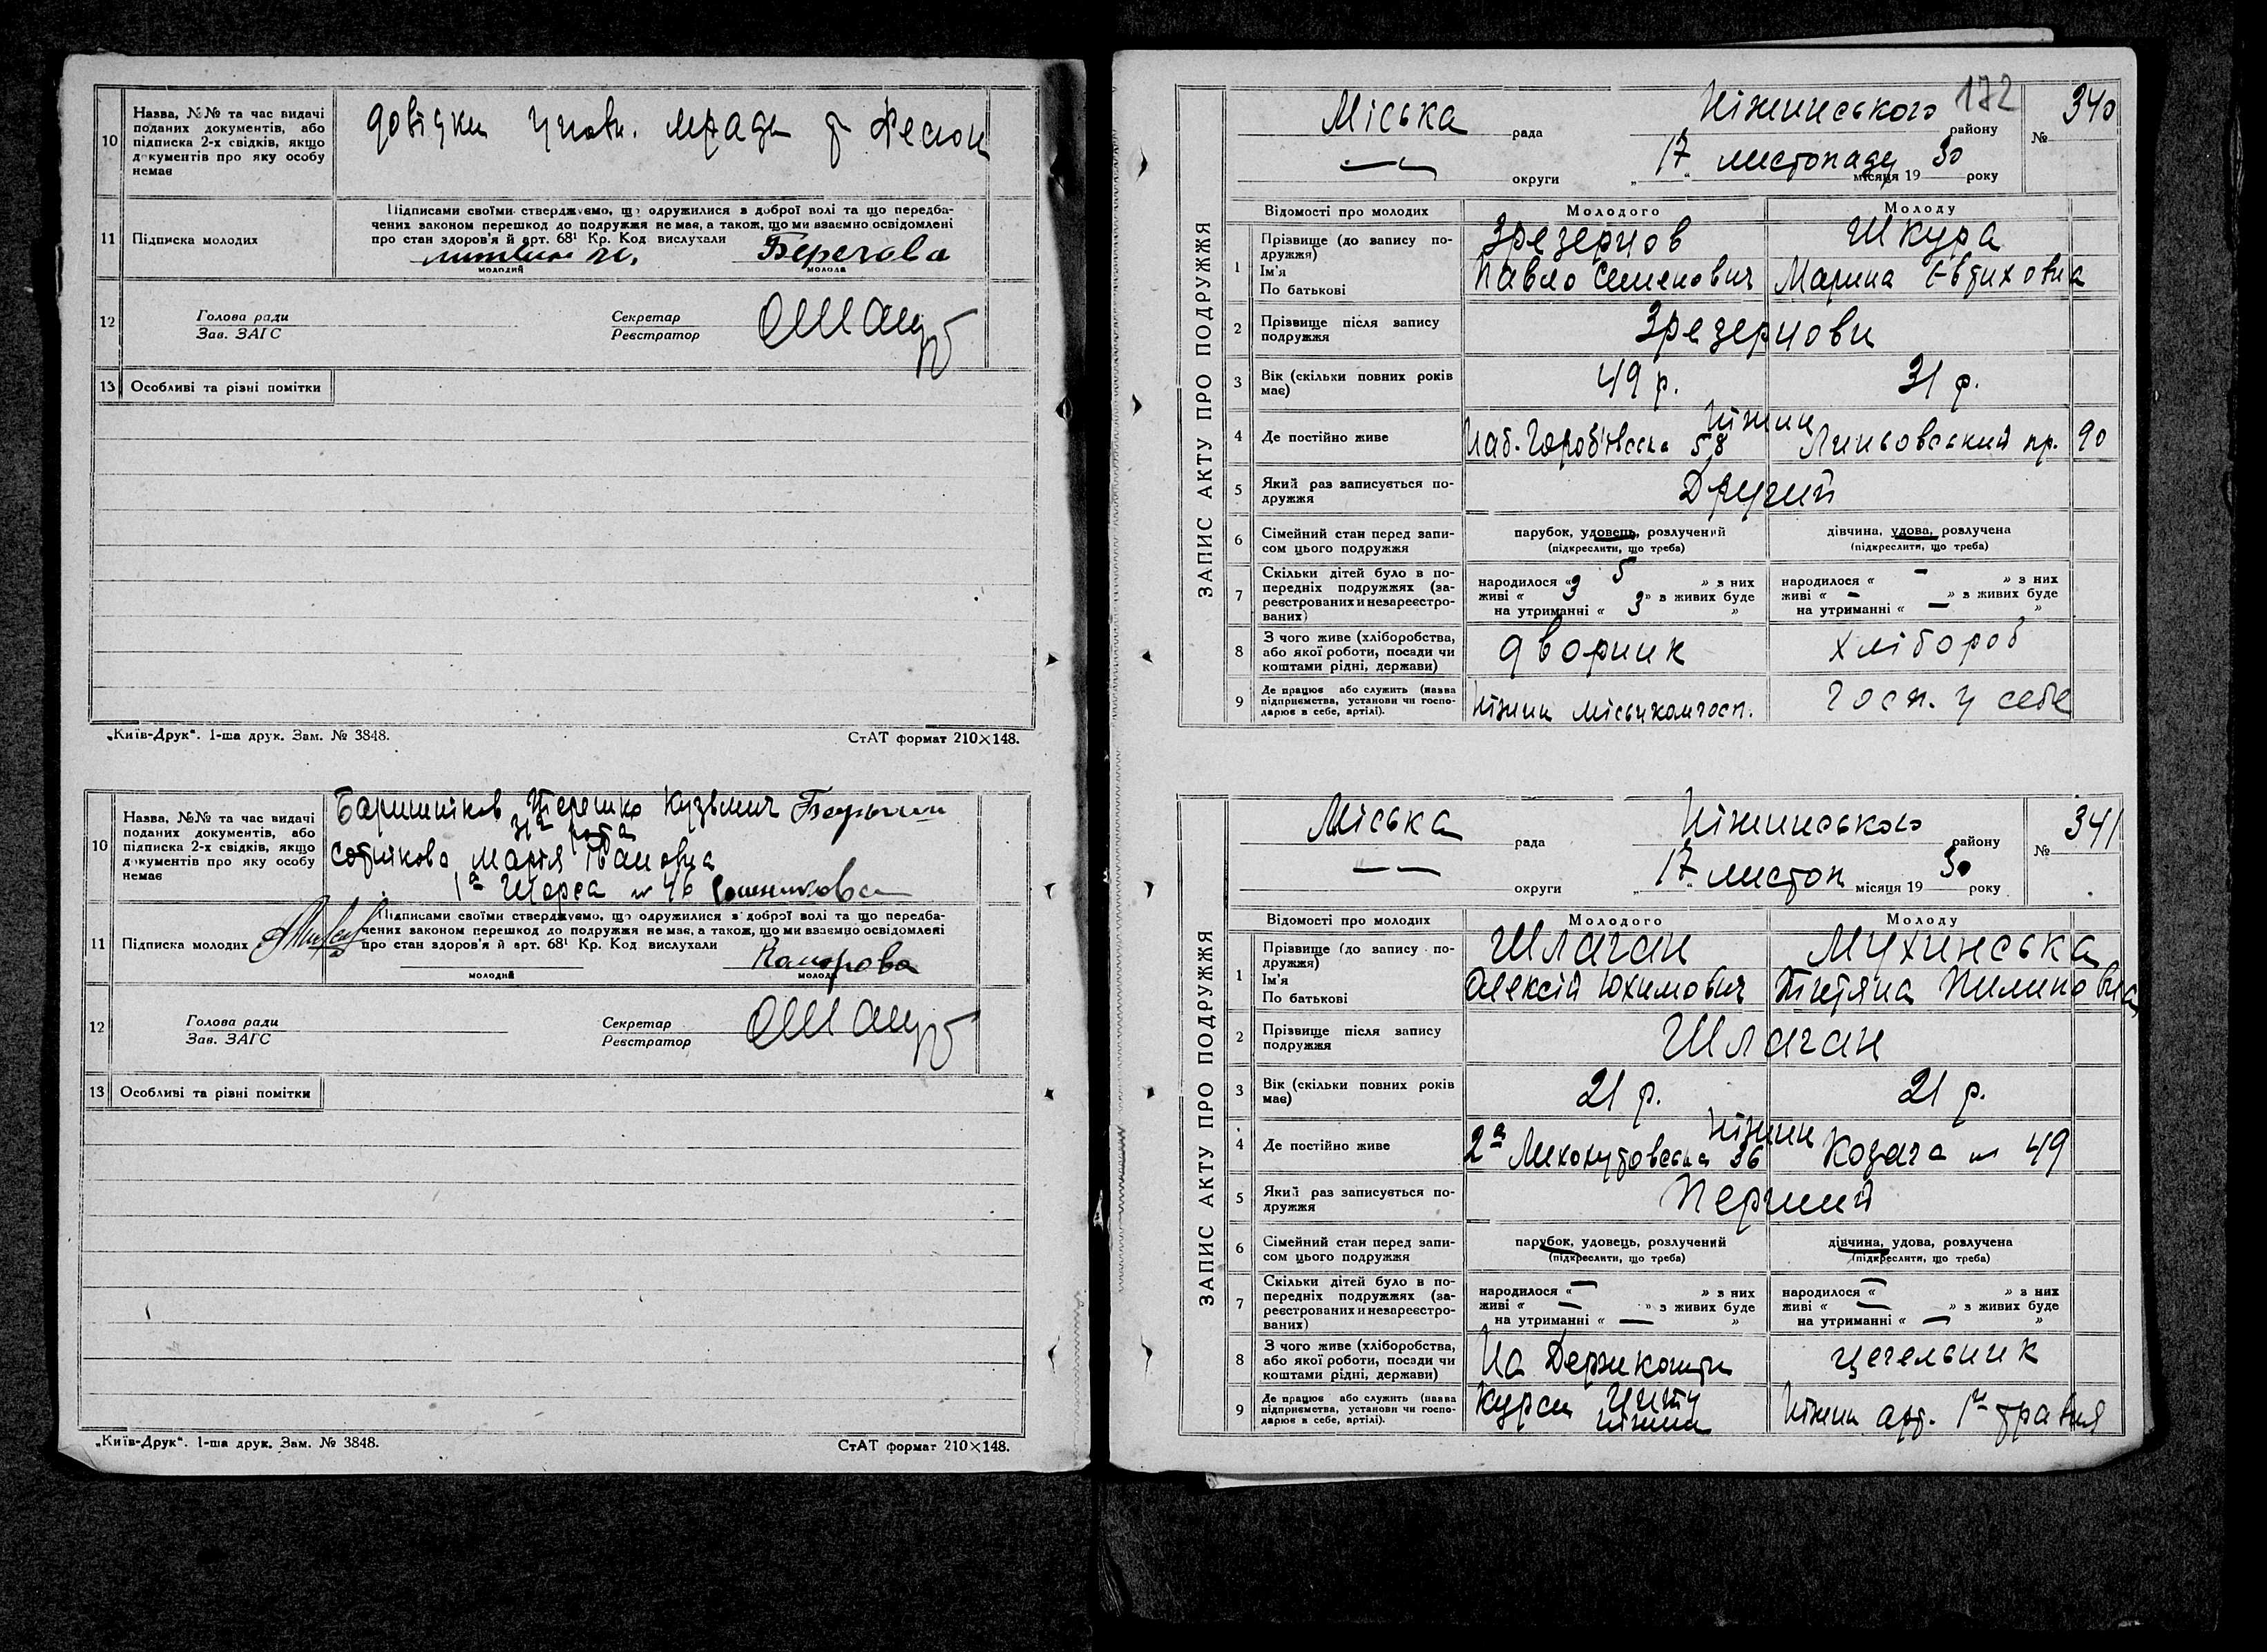 10
Назва, №№ та час видачі
поданих документів, або
підписка 2-х свідків, якщо
документів про яку особу
немає
довідки
11
Підписка молодих
Підписами своїми стверджуємо, що одружилися з доброї волі та що передба-
чених законом перешкод до подружжя немає, а також, що ми взаємно освідомлені
про стан здоров'я й арт. 68¹ Кр. Код вислухали
молодий
молода
12
Голова ради
Зав. ЗАГС
Секретар
Реєстратор
13
Особливі та різні помітки
„Київ-Друк“. 1-ша друк. Зам. № 3848.
СтАТ формат 210×148.
10
Назва, №№ та час видачі
поданих документів, або
підписка 2-х свідків, якщо
документів про яку особу
немає
Баришніков Терешко Кузьмич
Марія Івановна
1а Щорса № 46
11
Підписка молодих
Підписами своїми стверджуємо, що одружилися з доброї волі та що передба-
чених законом перешкод до подружжя немає, а також, що ми взаємно освідомлені
про стан здоров'я й арт. 68¹ Кр. Код вислухали
молодий
молода
12
Голова ради
Зав. ЗАГС
Секретар
Реєстратор
13
Особливі та різні помітки
„Київ-Друк“. 1-ша друк. Зам. № 3848.
СтАТ формат 210×148.
ЗАПИС АКТУ ПРО ПОДРУЖЖЯ
172
Міська рада Ніжинського району № 340
округи „17“ листопаду місяця 1930 року
Відомості про молодих Молодого Молоду
1
Прізвище (до запису по-
дружжя)
Ім'я
По батькові
Зрезерцов Шкура
Павло Семенович Марина Євтиховна
2
Прізвище після запису
подружжя
Зрезерцови
3
Вік (скільки повних років
має)
49 р. 31 р.
4
Де постійно живе
Ніжин
58 пр. 90
5
Який раз записується по-
дружжя
Другий
6
Сімейний стан перед запи-
сом цього подружжя
парубок, удовець, розлучений
(підкреслити, що треба)
дівчина, удова, розлучена
(підкреслити, що треба)
7
Скільки дітей було в по-
передніх подружжях (за-
реєстрованих и незареєстро-
ваних)
народилося « 5 » з них
живі « 3 » з живих буде
на утриманні « 3 »
народилося « — » з них
живі « — » з живих буде
на утриманні « — »
8
З чого живе (хліборобства,
або якої роботи, посади чи
коштами рідні, держави)
дворник хлібороб
9
Де працює або служить (назва
підприємства, установи чи госпо-
дарює в себе, артілі).
Ніжин міськкомгосп. госп. у себе
ЗАПИС АКТУ ПРО ПОДРУЖЖЯ
Міська рада Ніжинського району № 341
округи „17“ листоп місяця 1930 року
Відомості про молодих Молодого Молоду
1
Прізвище (до запису по-
дружжя)
Ім'я
По батькові
Шлаган Мухинська
Олексій Юхимович Титяна Пилиповна
2
Прізвище після запису
подружжя
Шлаган
3
Вік (скільки повних років
має)
21 р. 21 р.
4
Де постійно живе
Ніжин
2а 36 Козача № 49
5
Який раз записується по-
дружжя
Перший
6
Сімейний стан перед запи-
сом цього подружжя
парубок, удовець, розлучений
(підкреслити, що треба)
дівчина, удова, розлучена
(підкреслити, що треба)
7
Скільки дітей було в по-
передніх подружжях (за-
реєстрованих и незареєстро-
ваних)
народилося « — » з них
живі « — » з живих буде
на утриманні « — »
народилося « — » з них
живі « — » з живих буде
на утриманні « — »
8
З чого живе (хліборобства,
або якої роботи, посади чи
коштами рідні, держави)
На Держкошти цегельник
9
Де працює або служить (назва
підприємства, установи чи госпо-
дарює в себе, артілі).
Курси Ніжин Ніжин арт. 1го травня